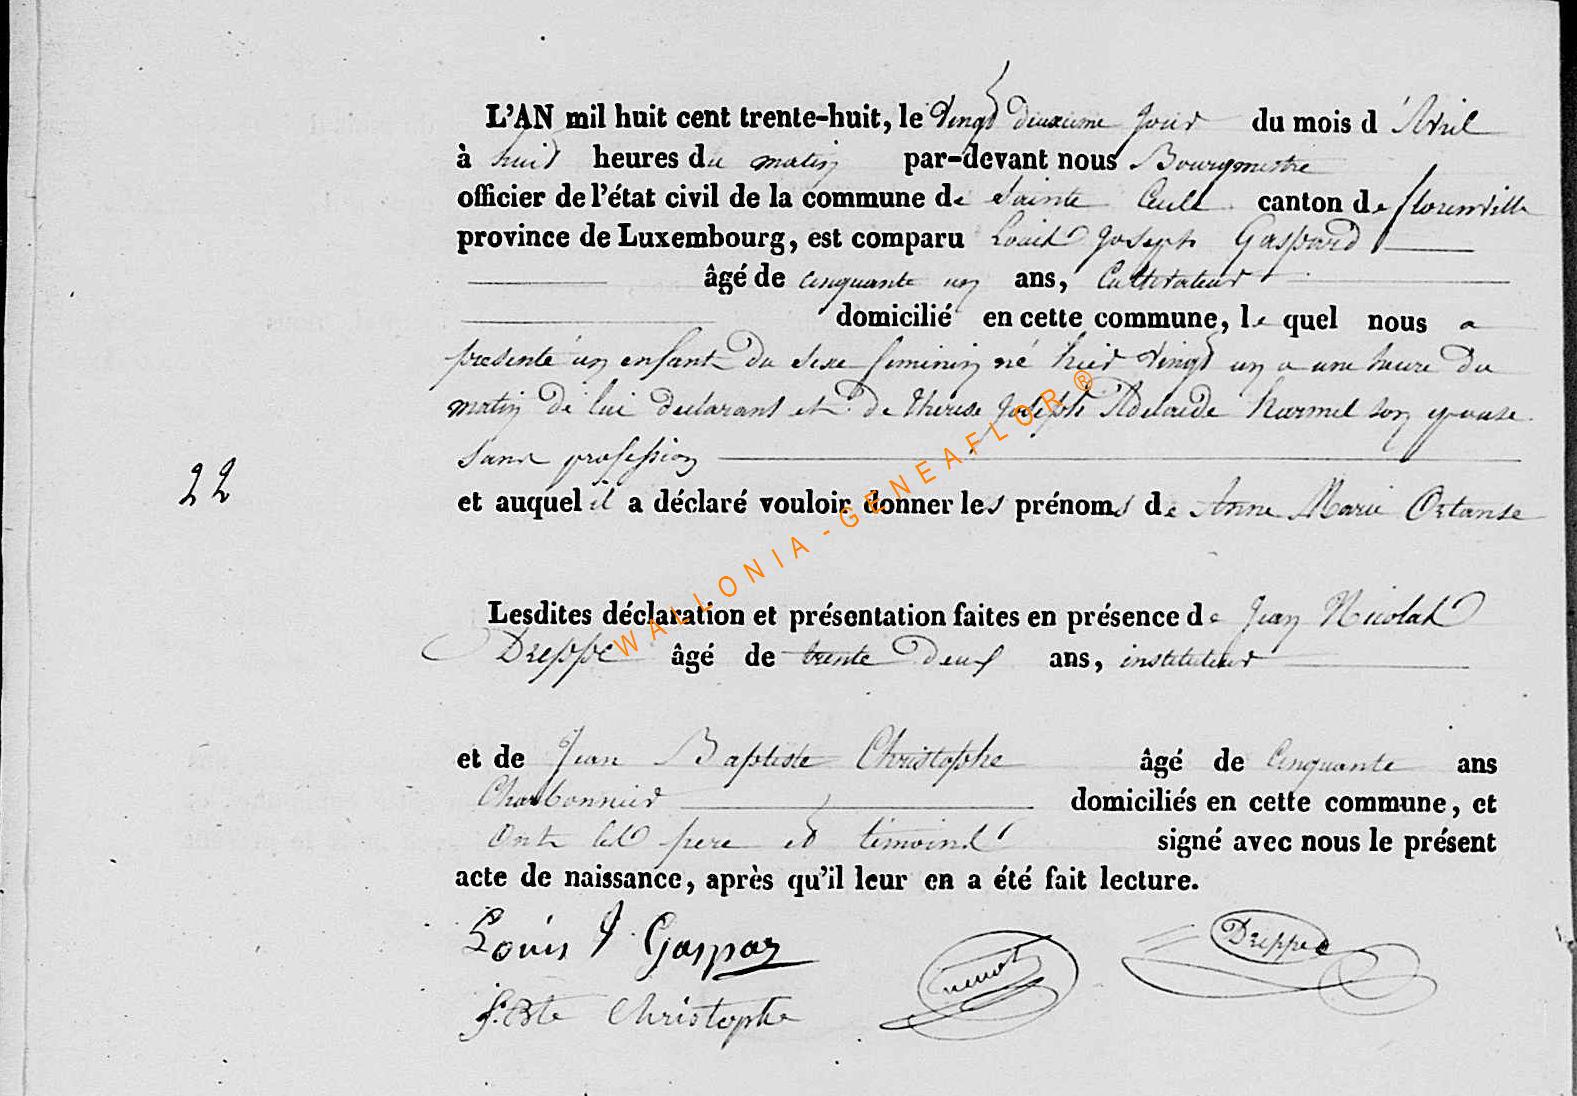 L'AN mil huit cent trente-huit, le vingt deuxieme jour du mois d'Avril
à huit heures du matin par-devant nous Bourgmestre
officier de l'état civil de la commune de Sainte Cecile canton de florenville
province de Luxembourg, est comparu Louis Joseph Gaspard
âgé de cinquante un ans, Cultivateur
domicilié en cette commune, le quel nous a
presenté un enfant du sexe feminin né hier vingt un a une heure du
matin de lui declarant et de therese joseph Adelaide Harmel son epouse
sans profession
22
et auquel il a déclaré vouloir donner les prénoms de Anne Marie Ortanse
Lesdites déclaration et présentation faites en présence de Jean Nicolas
Dreppe âgé de trente deux ans, instituteur
et de Jean Baptiste Christophe âgé de Cinquante ans
Charbonnier domiciliés en cette commune, et
ont les pere et témoins signé avec nous le présent
acte de naissance, après qu'il leur en a été fait lecture.
Louis J Gaspar Dreppe
J. Bte Christophe
WALLONIA - GENEAFLOR ®